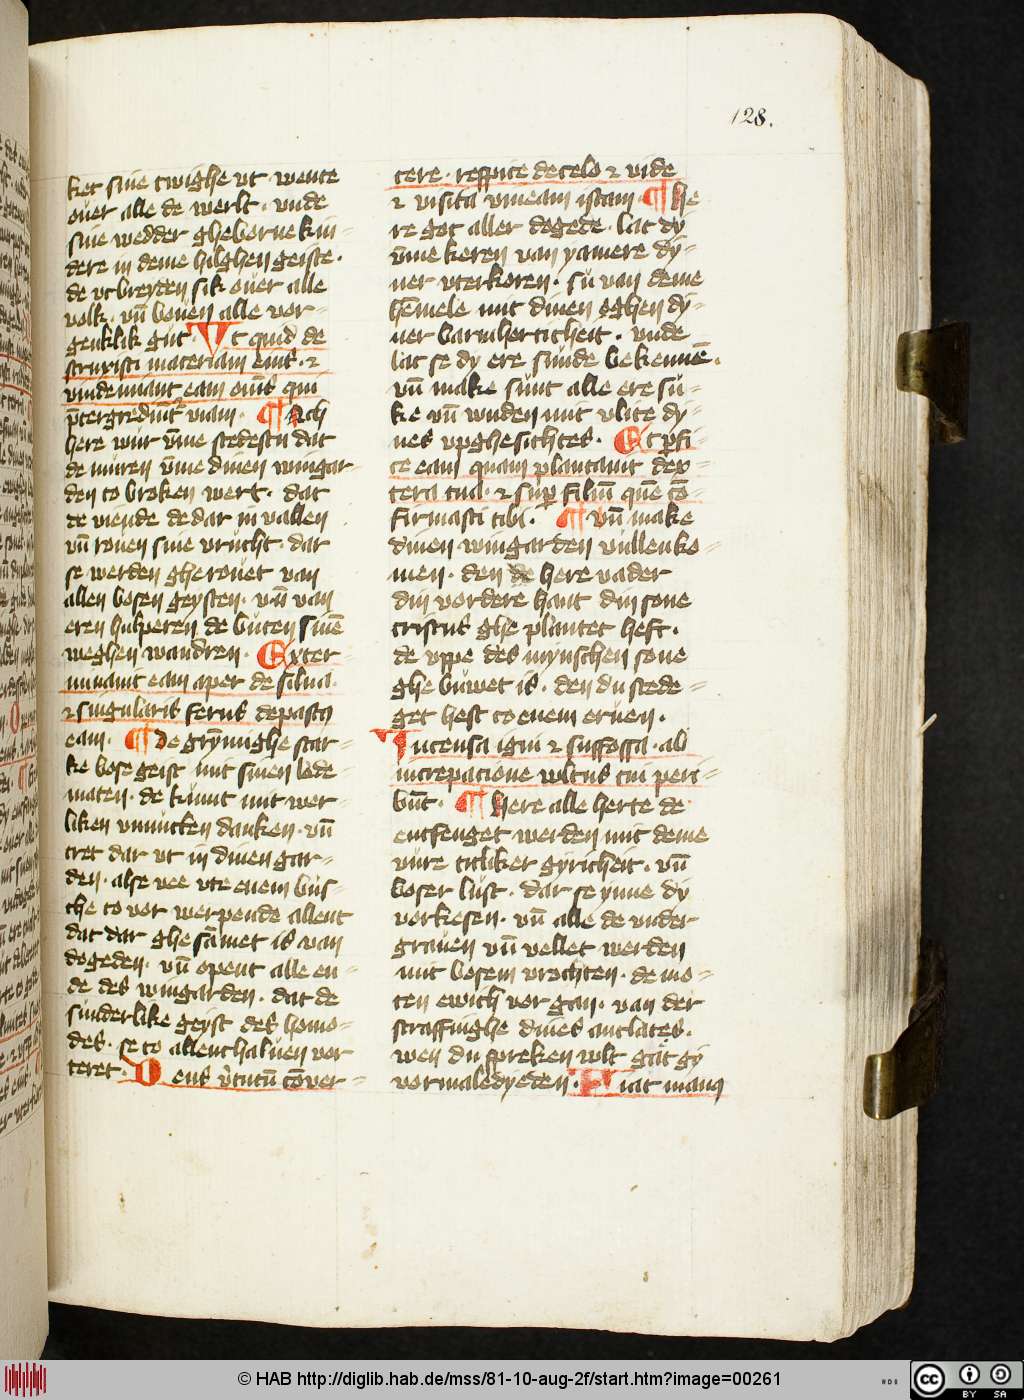 128.
ket sine twighe vt · wente
ouer alle de werlt · vnde
sine wedder gheborne kin-
dere in deme hilghen geiste ·
de vtbreyden sik ouer alle
volk · vn̄ bouen alle vor-
genklik gut · Vt quid de
struxisti maceriam eius · ⁊
vindemiant eam om̄s qui
p̄tergrediūt᷑ viam · ¶ Ach
here wur v̄me stedestu dat
de muren v̄me dinen wingar-
den to broken wert · dat
de viende dedar in vallen
vn̄ rouen sine vrucht · dar
se werden gherouet van
allen bosen geysten · vn̄ van
eren hulperen de buten sinē
weghen wandren · Exter-
minauit eam aper de silua ·
⁊ singularis ferus depastꝰ
eam · ¶ de grȳmighe star-
ke bose geist mit sinen lede-
maten · de kumt mit wer-
liken vnnutten danken · vn̄
tret dar vt in dinen gar-
den · alse vee vte enem bus-
che to vor werpende allent
dat dar ghesāmet is van
dogeden · vn̄ opent alle en-
de des wingarden · dat de
sunderlike geyst des homo-
des · se to allenthaluen vor
teret · Deus v̓tutū cōuer-
tere · respice de celo ⁊ vide
⁊ visita vineam istam · ¶ He
re got aller dogede · lat dy
v̄me keren van yamere dy-
ner vterkoren · su van deme
hēmele mit dinen oghen dy-
ner barmherticheit · vnde
lat se dy ere sunde bekennē ·
vn̄ make sunt alle ere su-
ke vn̄ wunden mit vlite dy-
nes vpghesichtes · Et ꝑfi-
ce eam quam plantauit dex-
tera tua · ⁊ suꝑ filiū quē cō-
firmasti tibi · ¶ vn̄ make
dinen wingarden vullenko-
men · den de here vader
din vordere hant din sone
cristus ghe plantet heft ·
de vppe des mynschen sone
ghe buwet is · den du stede-
get hest to enem eruen ·
Incensa igni ⁊ suffossa · ab
increpacione vultus tui peri-
būt · ¶ here alle herte de
entfenget werden mit deme
vure titliker gyricheit · vn̄
boser lust · dar se ynne dy
vorkesen · vn̄ alle de vnder
grauen vn̄ vellet werden
mit bosem vrochten · de mo-
ten ewich vor gan · van der
straffinghe dines antlates ·
wen du spreken wlt gat gy
vormaledyeden · Fiat manꝰ
© HAB http://diglib.hab.de/mss/81-10-aug-2f/start.htm?image=00261
HAB
cc
BY SA